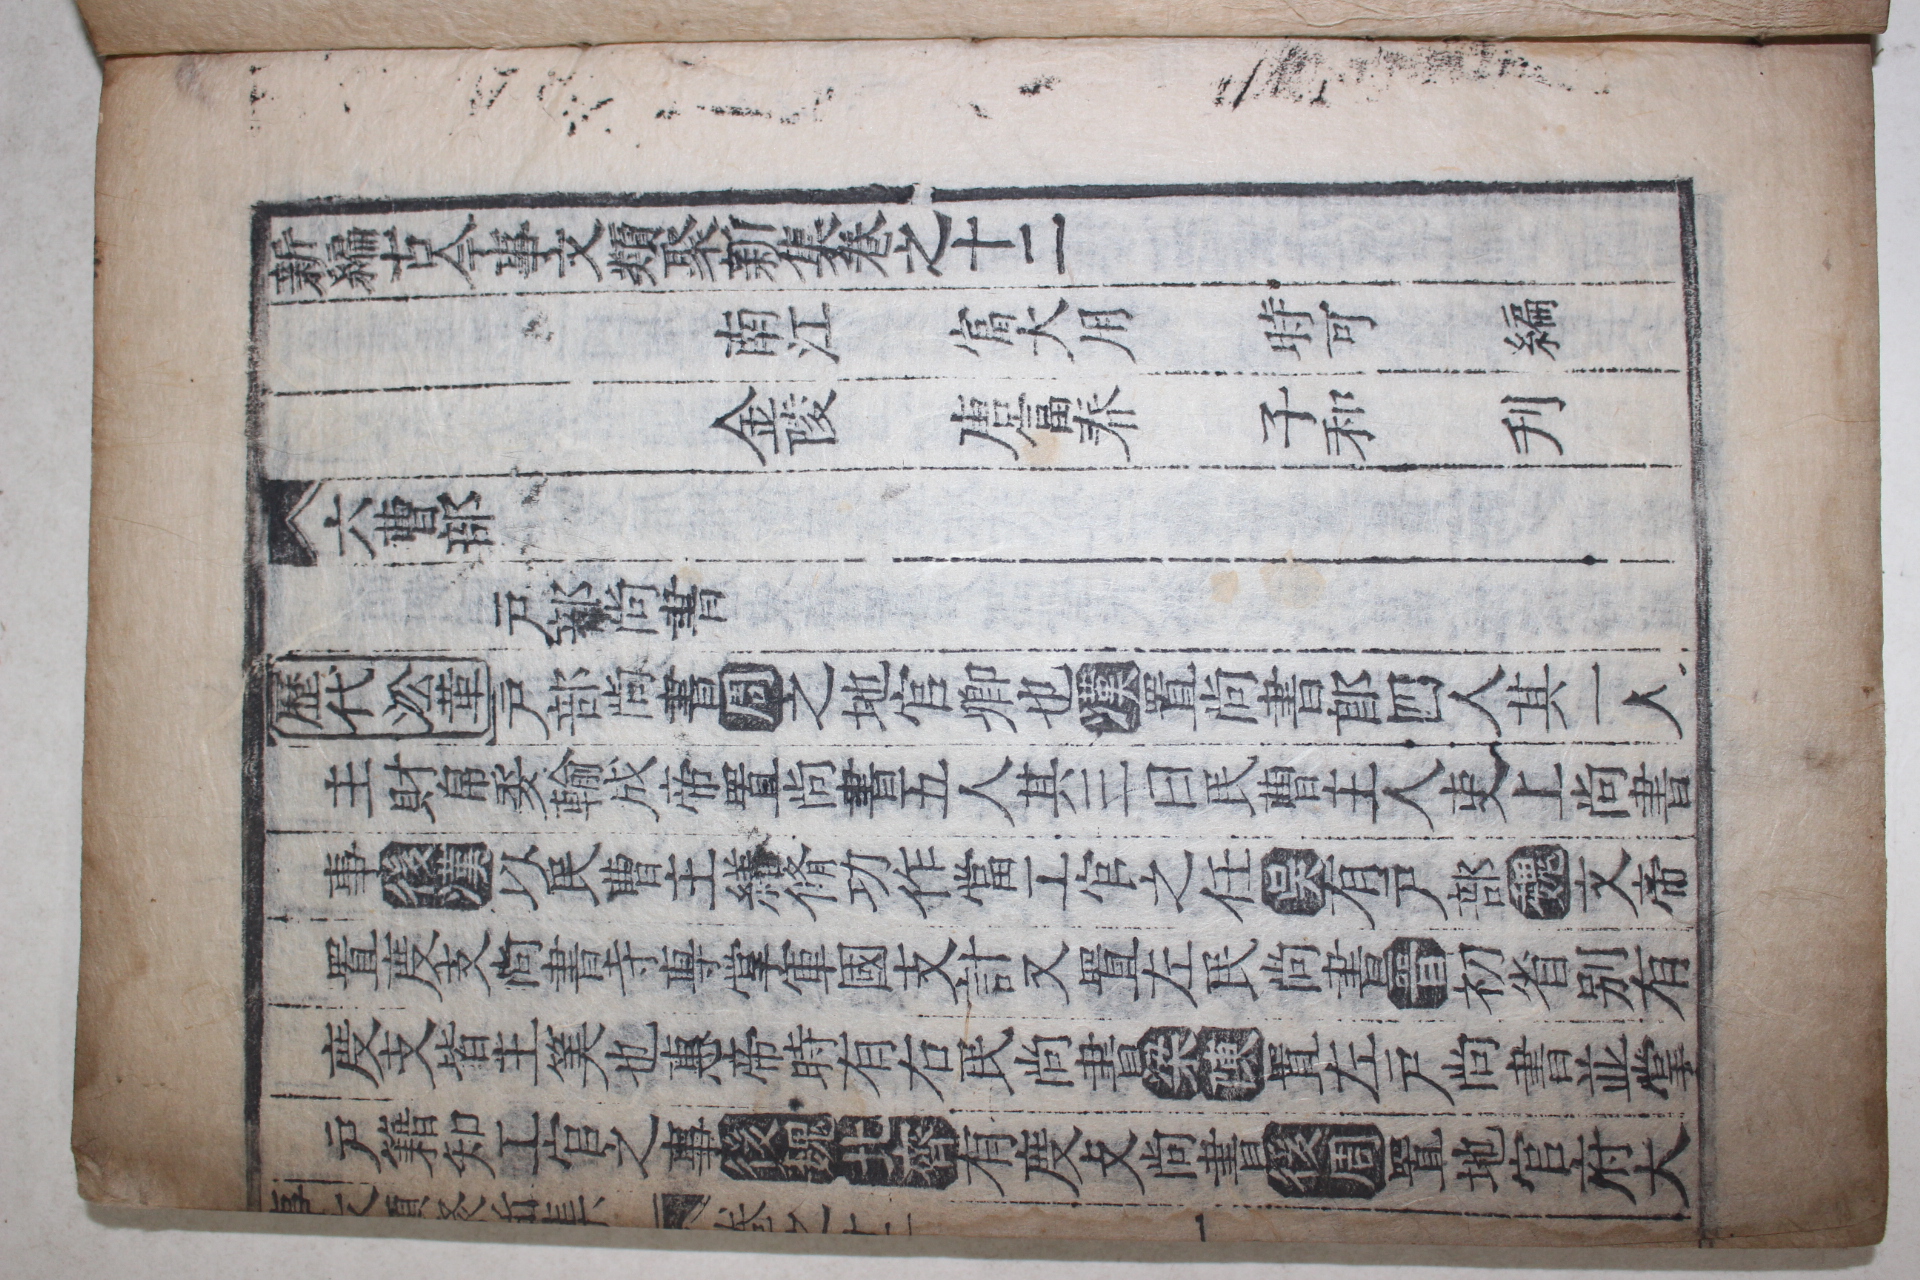 新編古今事文類聚新集卷之十二
南江 富大用 時可 編
金陵 唐富春 子和 刋
六曹部
戶部尚書
歷代沿革 戶部尚書周之地官卿也漢置尚書郎四人其一人
主財帛委輸成帝置尚書五人其三曰民曹主人吏上尚書
事後漢以民曹主繕脩功作當工官之任吳有戶部魏文帝
置度支尚書寺專掌軍國支計又置左民尚書晉初省別有
度支皆主筭也惠帝時有右民尚書梁陳置左戶尚書並掌
戶籍知工官之事後魏北齊有度支尚書後周置地官府大
事文類聚新集 卷之十二 一